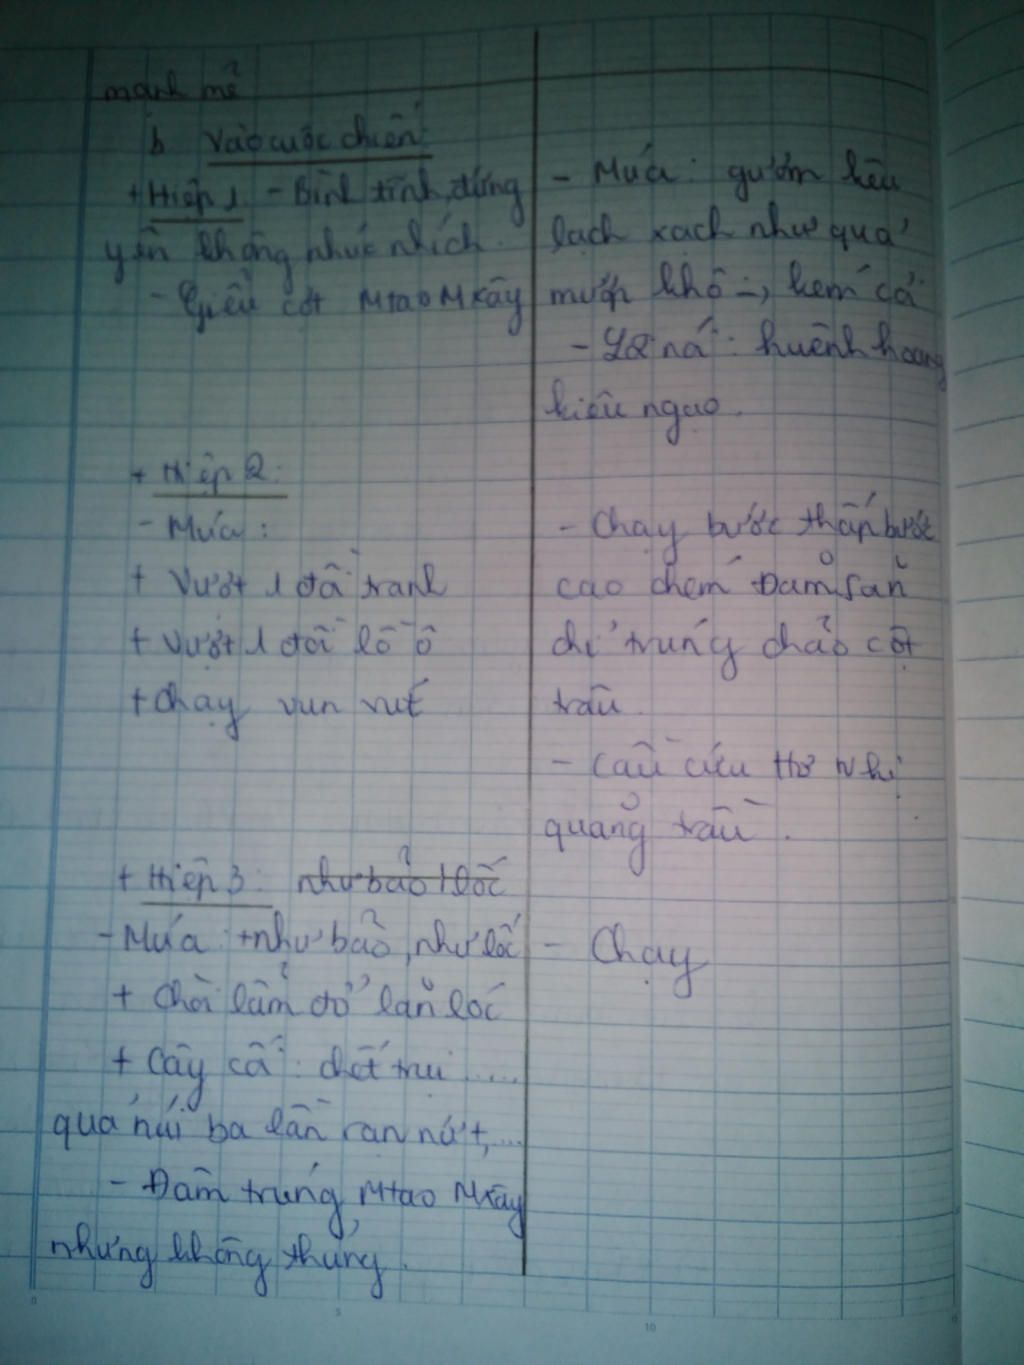 mạnh mẽ
b Vào cuộc chiến:
+ Hiệp 1. - Bình tĩnh, đứng
yên không nhúc nhích.
- Giễu cợt Mtao Mxây
+ Hiệp 2:
- Múa:
+ Vượt 1 đồi tranh
+ Vượt 1 đồi lồ ô
+ Chạy vun vút
+ Hiệp 3: như bão lốc
- Múa: + như bão, như lốc
+ Chòi lẫm đổ lăn lóc
+ Cây cối: chết trụi .....
quả núi ba lần rạn nứt, ...
- Đâm trúng Mtao Mxây
nhưng không thủng.
- Múa: gươm kêu
lạch xạch như quả
mướp khô -, kém cỏi
nó: huênh hoang
kiêu ngạo.
- Chạy bước thấp bước
cao chém Đăm Săn
chỉ trúng chão cột
trâu.
- Cầu cứu Hơ Nhị
quăng trầu.
- Chạy